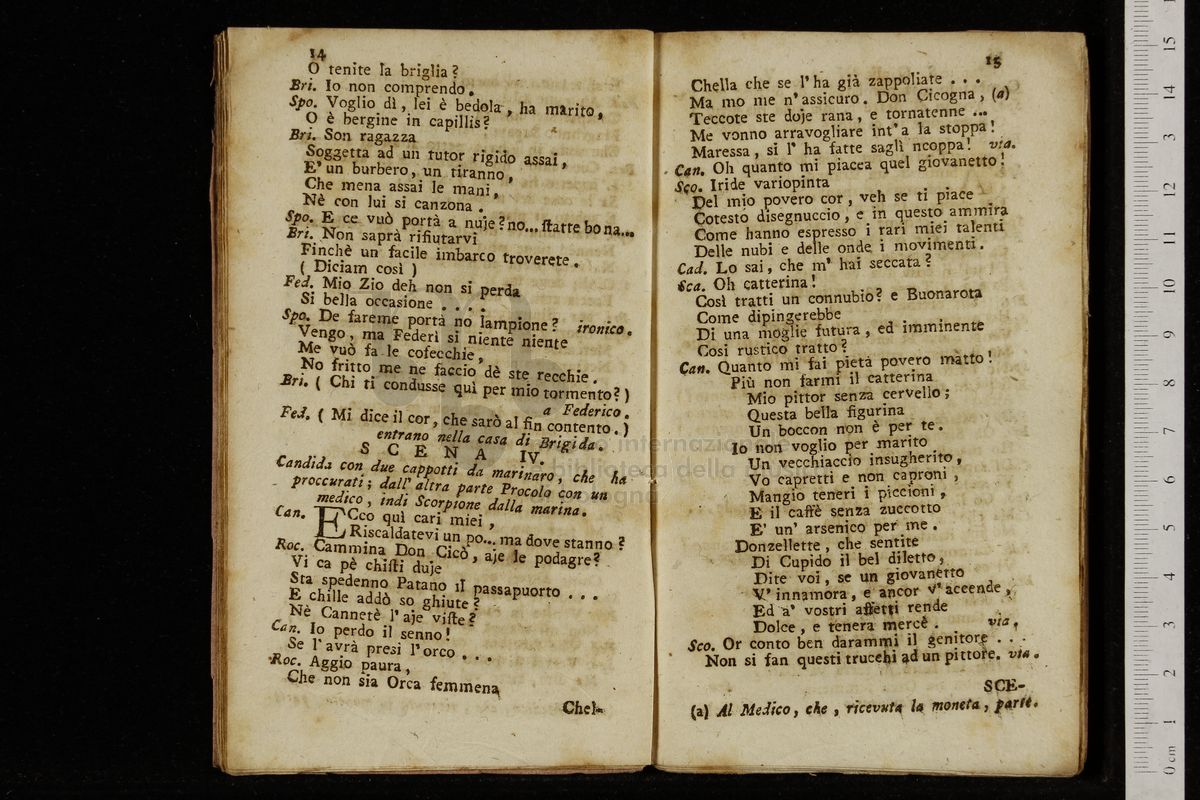 14
O tenite la briglia?
Bri. Io non comprendo.
Spo. Voglio dì, lei è bedola, ha marito,
O è bergine in capillis?
Bri. Son ragazza
Soggetta ad un tutor rigido assai,
E' un burbero, un tiranno,
Che mena assai le mani,
Nè con lui si canzona.
Spo. E ce vuò portà a nuje? no... statte bona...
Bri. Non saprà rifiutarvi
Finchè un facile imbarco troverete.
( Diciam così )
Fed. Mio Zio deh non si perda
Sì bella occasione . . . .
Spo. De fareme portà no lampione? ironico.
Vengo, ma Federì si niente niente
Me vuò fa le cofecchie,
No fritto me ne faccio dè ste recchie.
Bri. ( Chi ti condusse quì per mio tormento? )
a Federico.
Fed. ( Mi dice il cor, che sarò al fin contento. )
entrano nella casa di Brigida.
SCENA IV.
Candida con due cappotti da marinaro, che ha
proccurati; dall' altra parte Procolo con un
medico, indi Scorpione dalla marina.
Can. ECco quì cari miei,
Riscaldatevi un po... ma dove stanno?
Roc. Cammina Don Cicò, aje le podagre?
Vi ca pè chisti duje
Sta spedenno Patano il passapuorto . . .
E chille addò so ghiute?
Nè Cannetè l'aje viste?
Can. Io perdo il senno!
Se l'avrà presi l'orco . . .
Roc. Aggio paura,
Che non sia Orca femmena
Chel-
15
Chella che se l'ha già zappoliate . . .
Ma mo me n'assicuro. Don Cicogna, (a)
Teccote ste doje rana, e tornatenne ...
Me vonno arravogliare int'a la stoppa!
Maressa, si l' ha fatte saglì ncoppa! via.
Can. Oh quanto mi piacea quel giovanetto!
Sco. Iride variopinta
Del mio povero cor, veh se ti piace
Cotesto disegnuccio, e in questo ammira
Come hanno espresso i rari miei talenti
Delle nubi e delle onde i movimenti.
Cad. Lo sai, che m' hai seccata?
Sca. Oh catterina!
Così tratti un connubio? e Buonarota
Come dipingerebbe
Di una moglie futura, ed imminente
Così rustico tratto?
Can. Quanto mi fai pietà povero matto!
Più non farmi il catterina
Mio pittor senza cervello;
Questa bella figurina
Un boccon non è per te.
Io non voglio per marito
Un vecchiaccio insugherito,
Vo capretti e non caproni,
Mangio teneri i piccioni,
E il caffè senza zuccotto
E' un' arsenico per me.
Donzellette, che sentite
Di Cupido il bel diletto,
Dite voi, se un giovanetto
V' innamora, e ancor v'accende,
Ed a' vostri affetti rende
Dolce, e tenera mercè. via,
Sco. Or conto ben darammi il genitore . . .
Non si fan questi trucchi ad un pittore. via.
SCE-
(a) Al Medico, che, ricevuta la moneta, parte.
internazionale
biblioteca della musica
0 cm 1 2 3 4 5 6 7 8 9 10 11 12 13 14 15